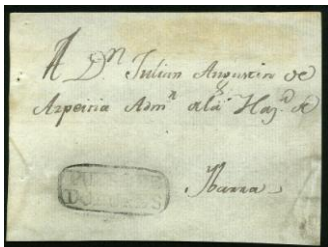 A Dⁿ Julian Augustin de
Azpeitia Admⁿ ala Hazᵈ de
Ibarra